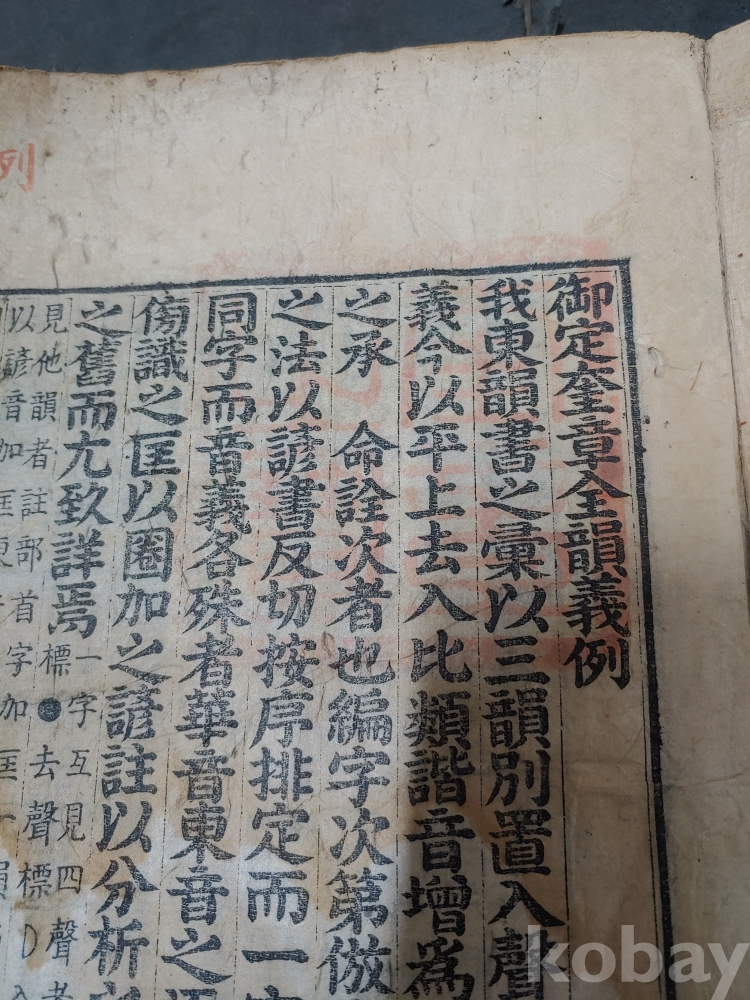 御定奎章全韻義例
我東韻書之彙以三韻別置入聲
義今以平上去入比類諧音增爲
之承 命詮次者也編字次第倣
之法以諺書反切按序排定而一字
同字而音義各殊者華音東音之
傍識之匡以圈加之諺註以分析
之舊而尤致詳焉 標一字互見四聲者
標● 去聲標D入
見他韻者註部首字加匡
以諺音加匡
例
kobay